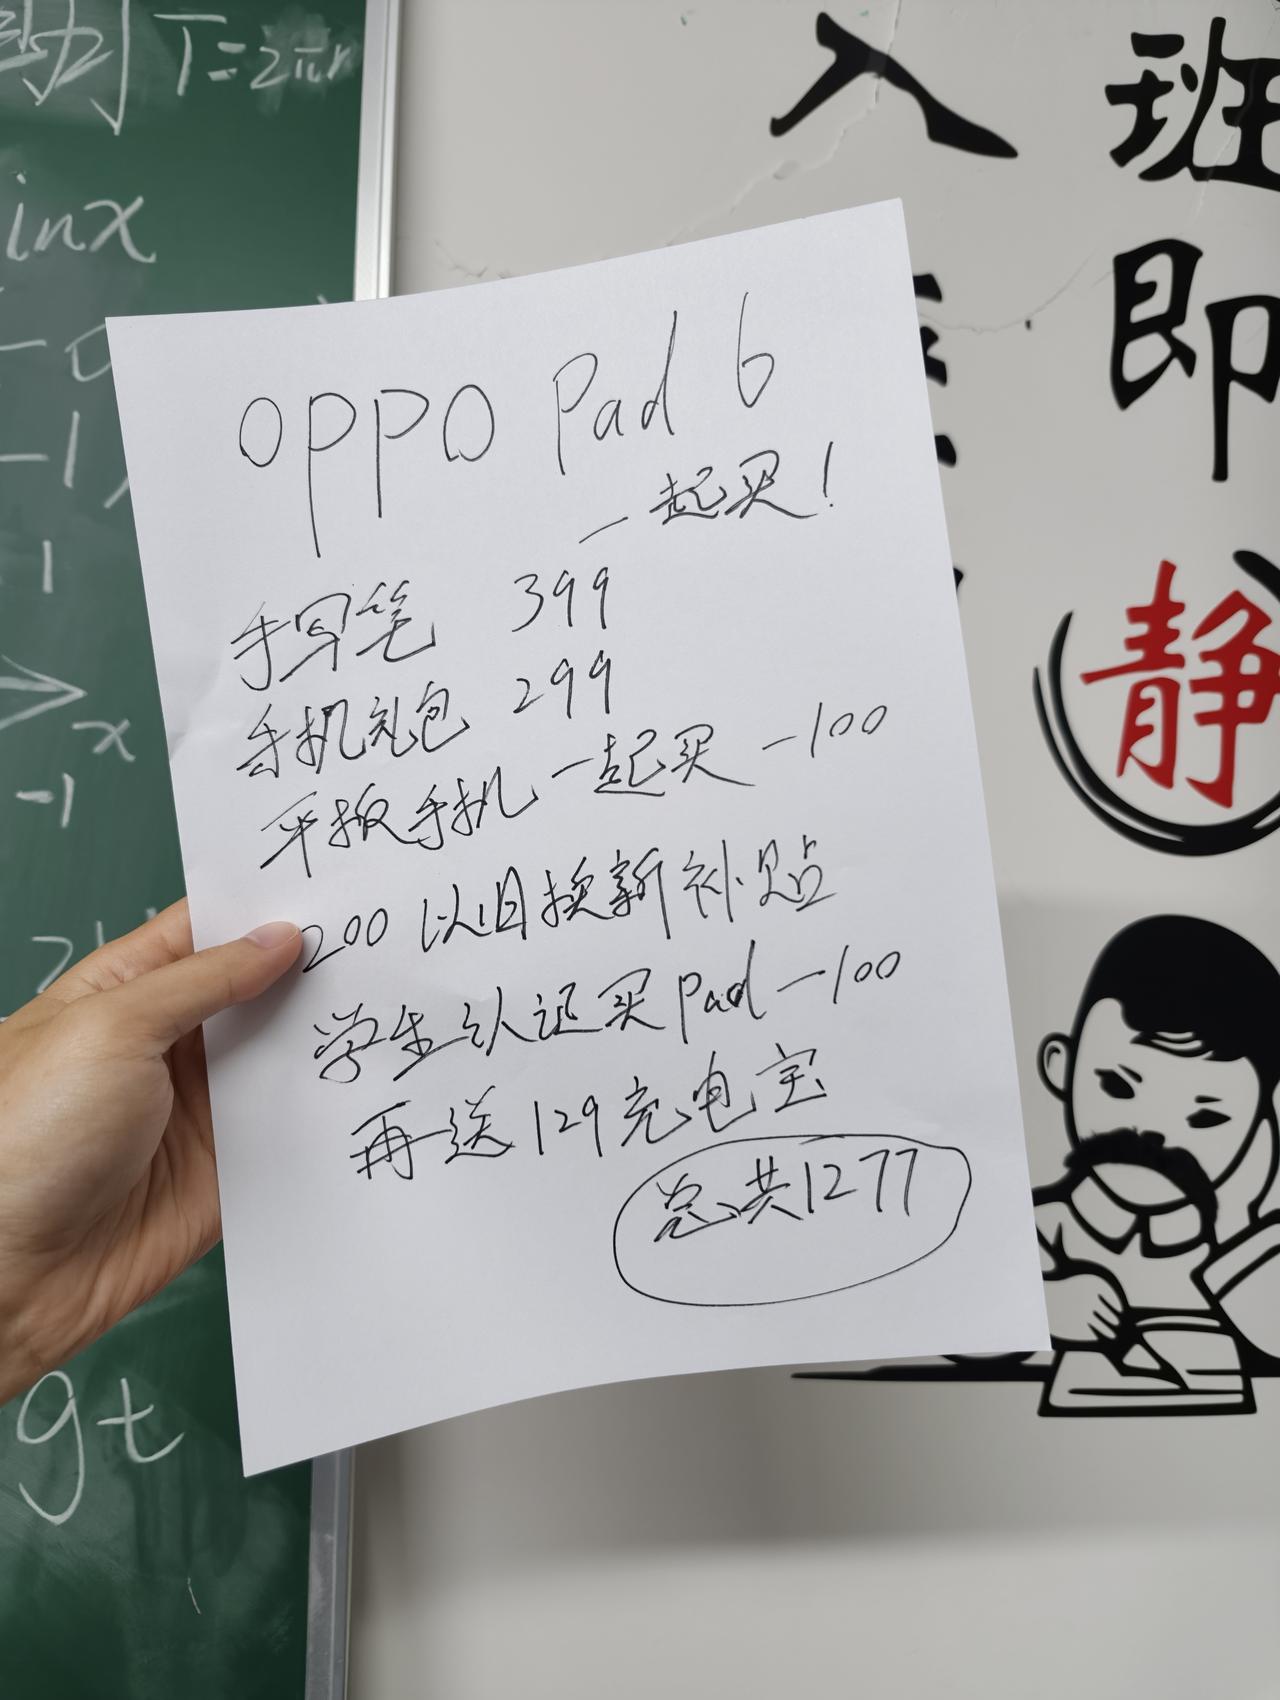 T=2πr
inx
-1
1
x
-1
gt
入班即
静
OPPO Pad 6
一起买！
手写笔 399
手机礼包 299
平板手机一起买 -100
200以旧换新补贴
学生认证买Pad -100
再送129充电宝
总共1277